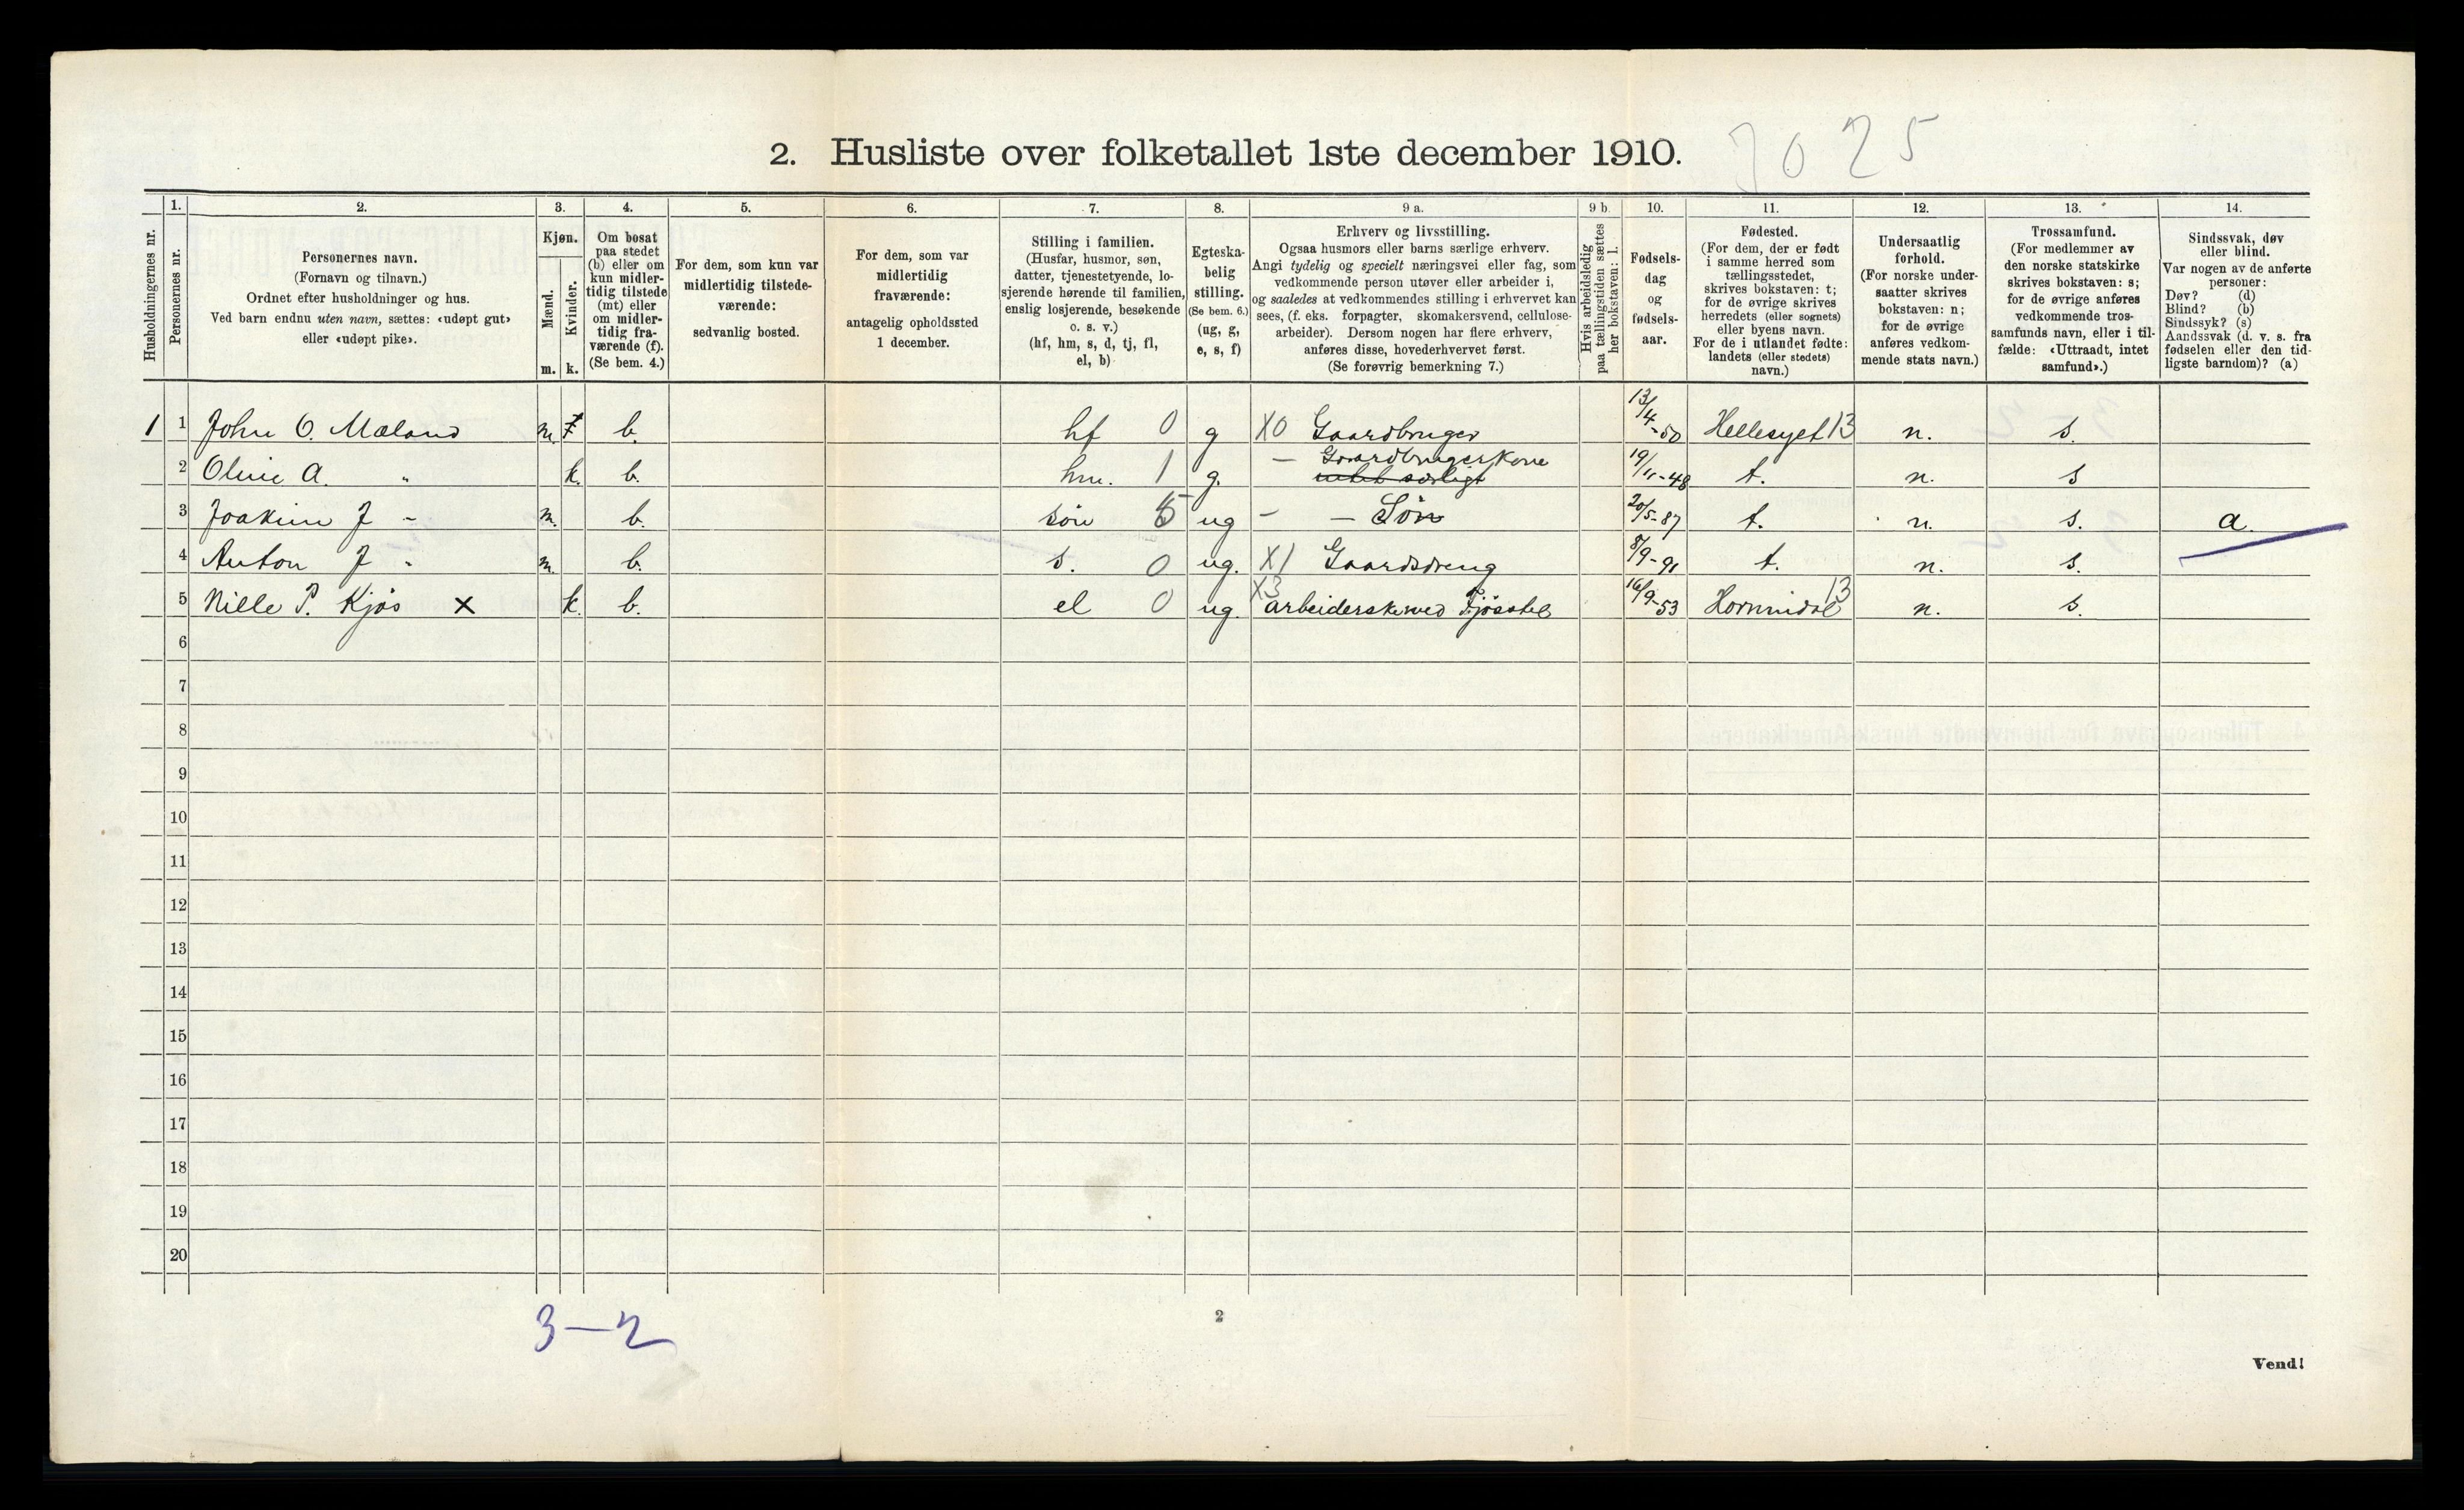 2. Husliste over folketallet 1ste december 1910.
7025
Husholdningernes nr.
1.
Personernes nr.
2.
Personernes navn.
(Fornavn og tilnavn.)
Ordnet efter husholdninger og hus.
Ved barn endnu uten navn, sættes: «udøpt gut»
eller «udøpt pike».
3.
Kjøn.
Mænd.
Kvinder.
m. k.
4.
Om bosat
paa stedet
(b) eller om
kun midler-
tidig tilstede
(mt) eller
om midler-
tidig fra-
værende (f).
(Se bem. 4.)
5.
For dem, som kun var
midlertidig tilstede-
værende:
sedvanlig bosted.
6.
For dem, som var
midlertidig
fraværende:
antagelig opholdssted
1 december.
7.
Stilling i familien.
(Husfar, husmor, søn,
datter, tjenestetyende, lo-
sjerende hørende til familien,
enslig losjerende, besøkende
o. s. v.)
(hf, hm, s, d, tj, fl,
el, b)
8.
Egteska-
belig
stilling.
(Se bem. 6.)
(ug, g,
e, s, f)
9 a.
Erhverv og livsstilling.
Ogsaa husmors eller barns særlige erhverv.
Angi tydelig og specielt næringsvei eller fag, som
vedkommende person utøver eller arbeider i,
og saaledes at vedkommendes stilling i erhvervet kan
sees, (f. eks. forpagter, skomakersvend, cellulose-
arbeider). Dersom nogen har flere erhverv,
anføres disse, hovederhvervet først.
(Se forøvrig bemerkning 7.)
9 b.
Hvis arbeidsledig
paa tællingstiden sættes
her bokstaven: l.
10.
Fødsels-
dag
og
fødsels-
aar.
11.
Fødested.
(For dem, der er født
i samme herred som
tællingsstedet,
skrives bokstaven: t;
for de øvrige skrives
herredets (eller sognets)
eller byens navn.
For de i utlandet fødte:
landets (eller stedets)
navn.)
12.
Undersaatlig
forhold.
(For norske under-
saatter skrives
bokstaven: n;
for de øvrige
anføres vedkom-
mende stats navn.)
13.
Trossamfund.
(For medlemmer av
den norske statskirke
skrives bokstaven: s;
for de øvrige anføres
vedkommende tros-
samfunds navn, eller i til-
fælde: «Uttraadt, intet
samfund».)
14.
Sindssvak, døv
eller blind.
Var nogen av de anførte
personer:
Døv? (d)
Blind? (b)
Sindssyk? (s)
Aandssvak (d. v. s. fra
fødselen eller den tid-
ligste barndom)? (a)
1 1 John O. Mæland m. b. hf 0 g X0 Gaardbruger 13/4-50 Hellesyet 13 n. s.
2 Oline A. " k. b. hm. 1 g. - Gaardbrugerkone intet særligt 19/11-48 t. n. s
3 Joakim J - m. b. søn 5 ug - - Søn 20/5-87 t. n. s. a.
4 Anton J " m. b. s. 0 ug. X1 Gaardsdreng 8/9-91 t. n. s.
5 Nille P. Kjøs X k. b. el 0 ug. X3 arbeiderske ved Fjøsstel 16/9-53 Hornindal 13 n. s.
6
7
8
9
10
11
12
13
14
15
16
17
18
19
20
3-2
2
Vend!